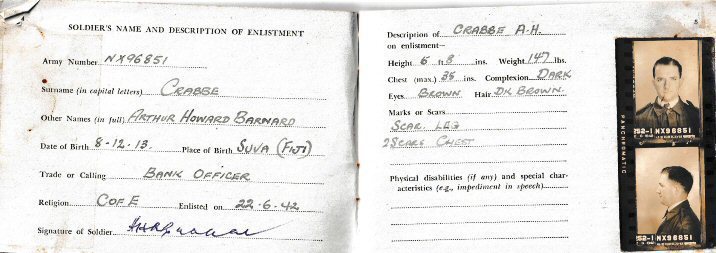 SOLDIER'S NAME AND DESCRIPTION OF ENLISTMENT
Army Number NX96851
Surname (in capital letters) CRABBE
Other Names (in full) ARTHUR HOWARD BARNARD
Date of Birth 8-12-13. Place of Birth SUVA (FIJI)
Trade or Calling BANK OFFICER
Religion C OF E Enlisted on 22.6.42
Signature of Soldier
5
Description of CRABBE A.H.
on enlistment—
Height 6 ft 8 ins. Weight 147 lbs.
Chest (max.) 35 ins. Complexion DARK
Eyes BROWN Hair DK BROWN.
Marks or Scars
SCAR LEG
2 SCARS CHEST
Physical disabilities (if any) and special char-
acteristics (e.g., impediment in speech)
PANCHROMATIC
252-1 NX96851
252-1 NX96851